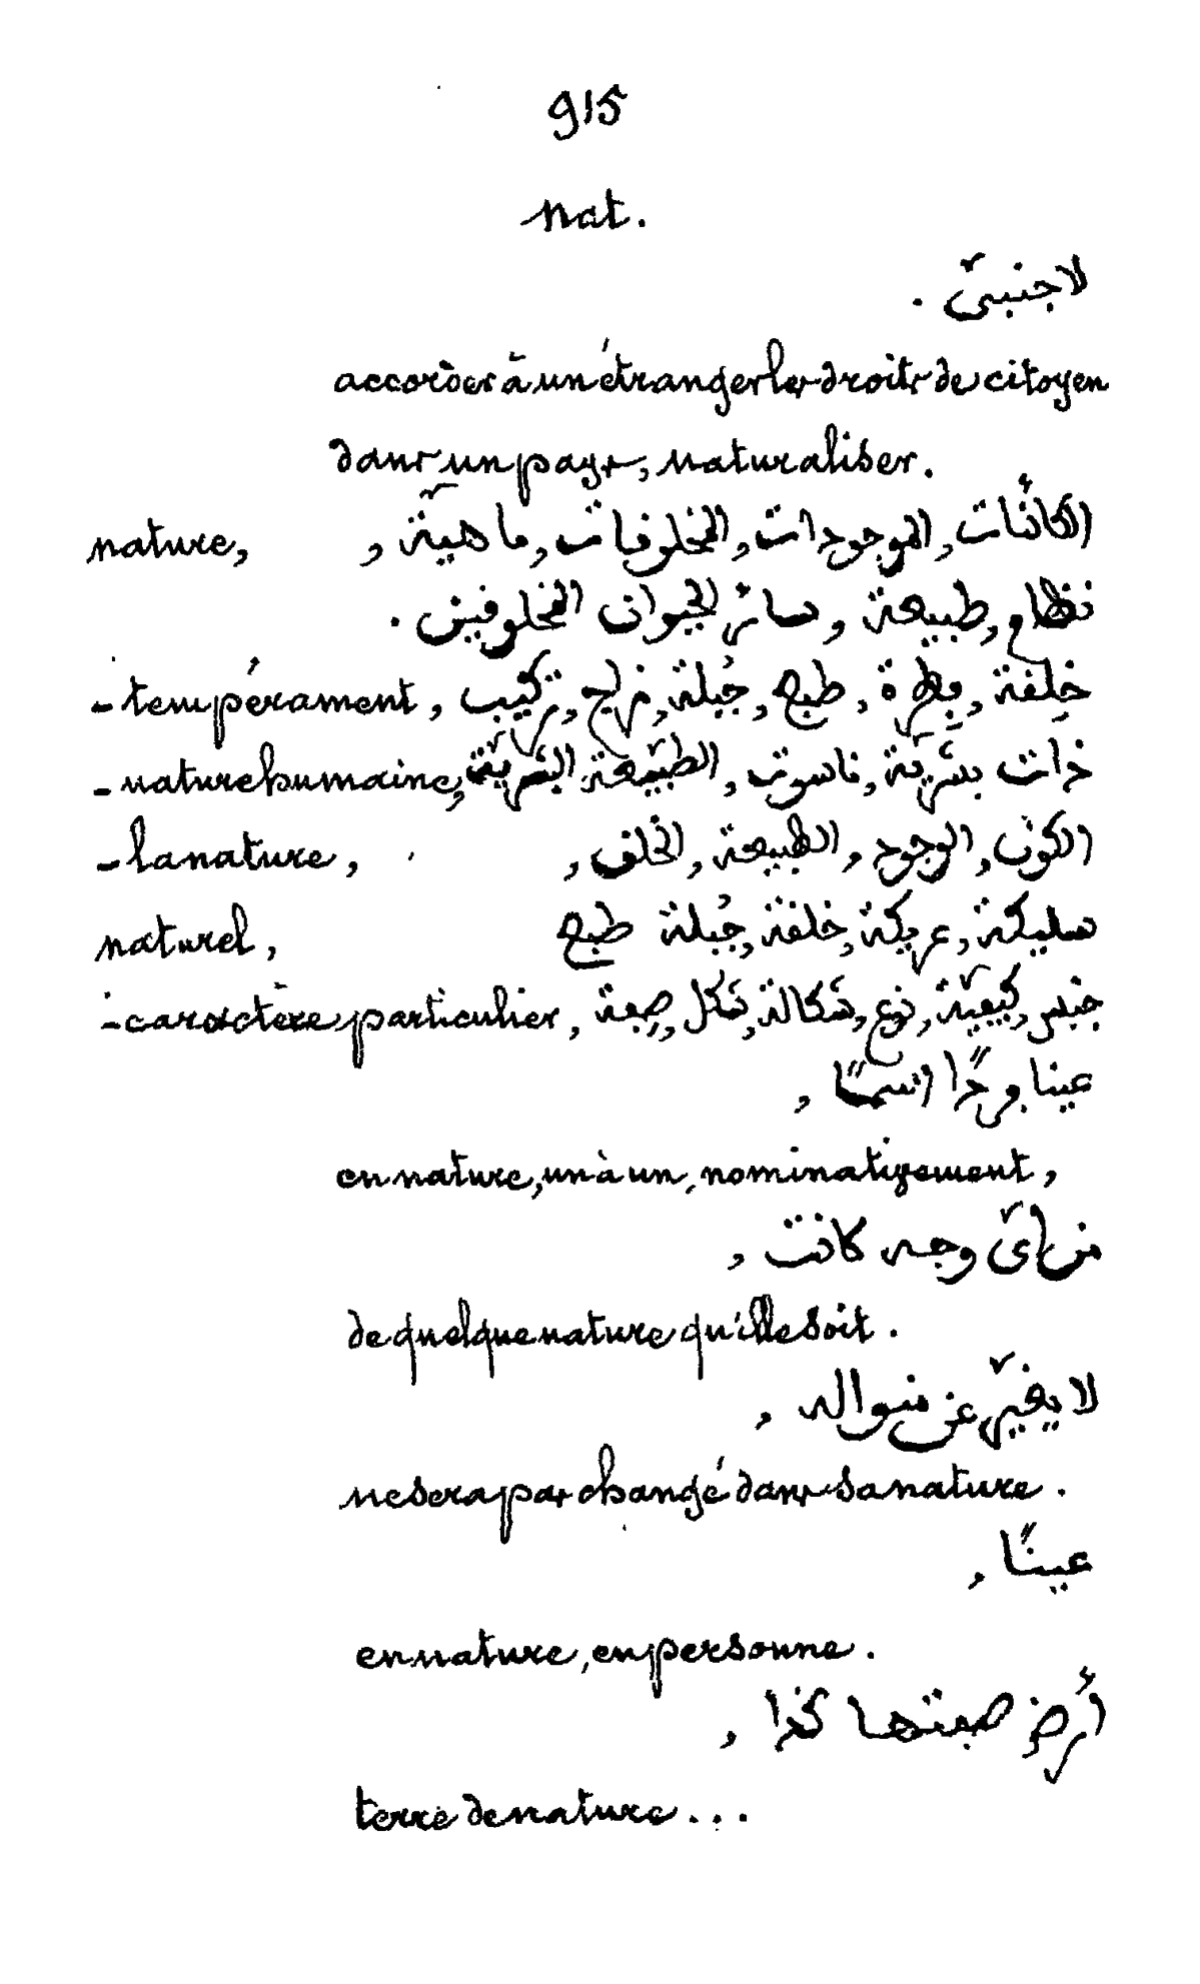 915
nat.
لاجنبىّ .
accorder à un étranger les droits de citoyen
dans un pays, naturaliser.
nature, الكائنات, الموجودات, المخلوقات, ماهيّة,
نظام, طبيعة, وسائر الحيوان المخلوقين.
- tempérament, خِلقة, فِطرة, طبع, جُبلة, مزاج, تركيب
- nature humaine, ذات بشريّة, ناسوت, الطبيعة البشريّة,
- la nature, الكون, الوجود, الطبيعة, الخلق,
naturel, سليكة, عريكة, خلقة, جُبلة طبع
- caractère particulier, جنس, كيفيّة, نوع, شكالة, شكل, صِفة
عينا فردًا اسمًا,
en nature, un à un, nominativement,
من اىّ وجه كانت,
de quelque nature qu'ille soit.
لا يغيّر عن منواله,
ne sera pas changé dans sa nature.
عينًا,
en nature, en personne.
أرض صفتها كذا,
terre de nature...